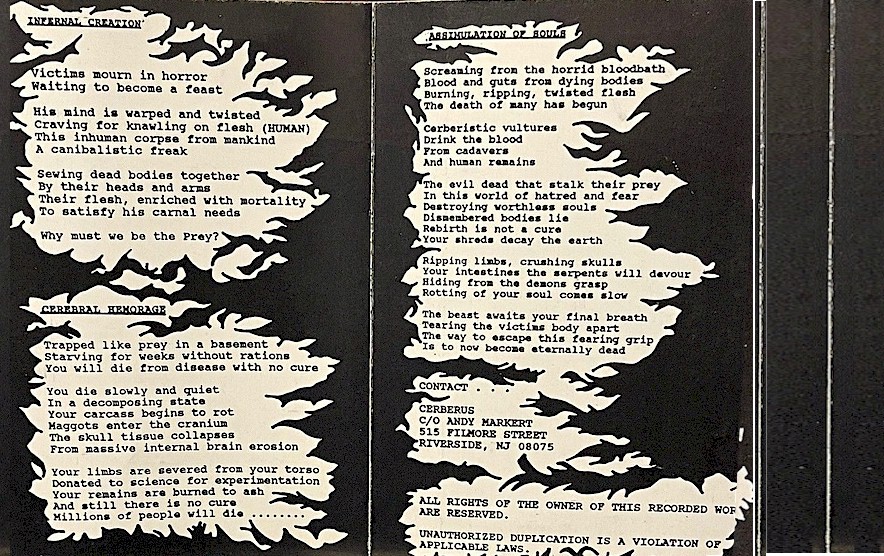 INFERNAL CREATION
Victims mourn in horror
Waiting to become a feast
His mind is warped and twisted
Craving for knawling on flesh (HUMAN)
This inhuman corpse from mankind
A canibalistic freak
Sewing dead bodies together
By their heads and arms
Their flesh, enriched with mortality
To satisfy his carnal needs
Why must we be the Prey?
CEREBRAL HEMORAGE
Trapped like prey in a basement
Starving for weeks without rations
You will die from disease with no cure
You die slowly and quiet
In a decomposing state
Your carcass begins to rot
Maggots enter the cranium
The skull tissue collapses
From massive internal brain erosion
Your limbs are severed from your torso
Donated to science for experimentation
Your remains are burned to ash
And still there is no cure
Millions of people will die ........
ASSIMULATION OF SOULS
Screaming from the horrid bloodbath
Blood and guts from dying bodies
Burning, ripping, twisted flesh
The death of many has begun
Cerberistic vultures
Drink the blood
From cadavers
And human remains
The evil dead that stalk their prey
In this world of hatred and fear
Destroying worthless souls
Dismembered bodies lie
Rebirth is not a cure
Your shreds decay the earth
Ripping limbs, crushing skulls
Your intestines the serpents will devour
Hiding from the demons grasp
Rotting of your soul comes slow
The beast awaits your final breath
Tearing the victims body apart
The way to escape this fearing grip
Is to now become eternally dead
CONTACT . . . .
CERBERUS
C/O ANDY MARKERT
515 FILMORE STREET
RIVERSIDE, NJ 08075
ALL RIGHTS OF THE OWNER OF THIS RECORDED WOR
ARE RESERVED.
UNAUTHORIZED DUPLICATION IS A VIOLATION OF
APPLICABLE LAWS.